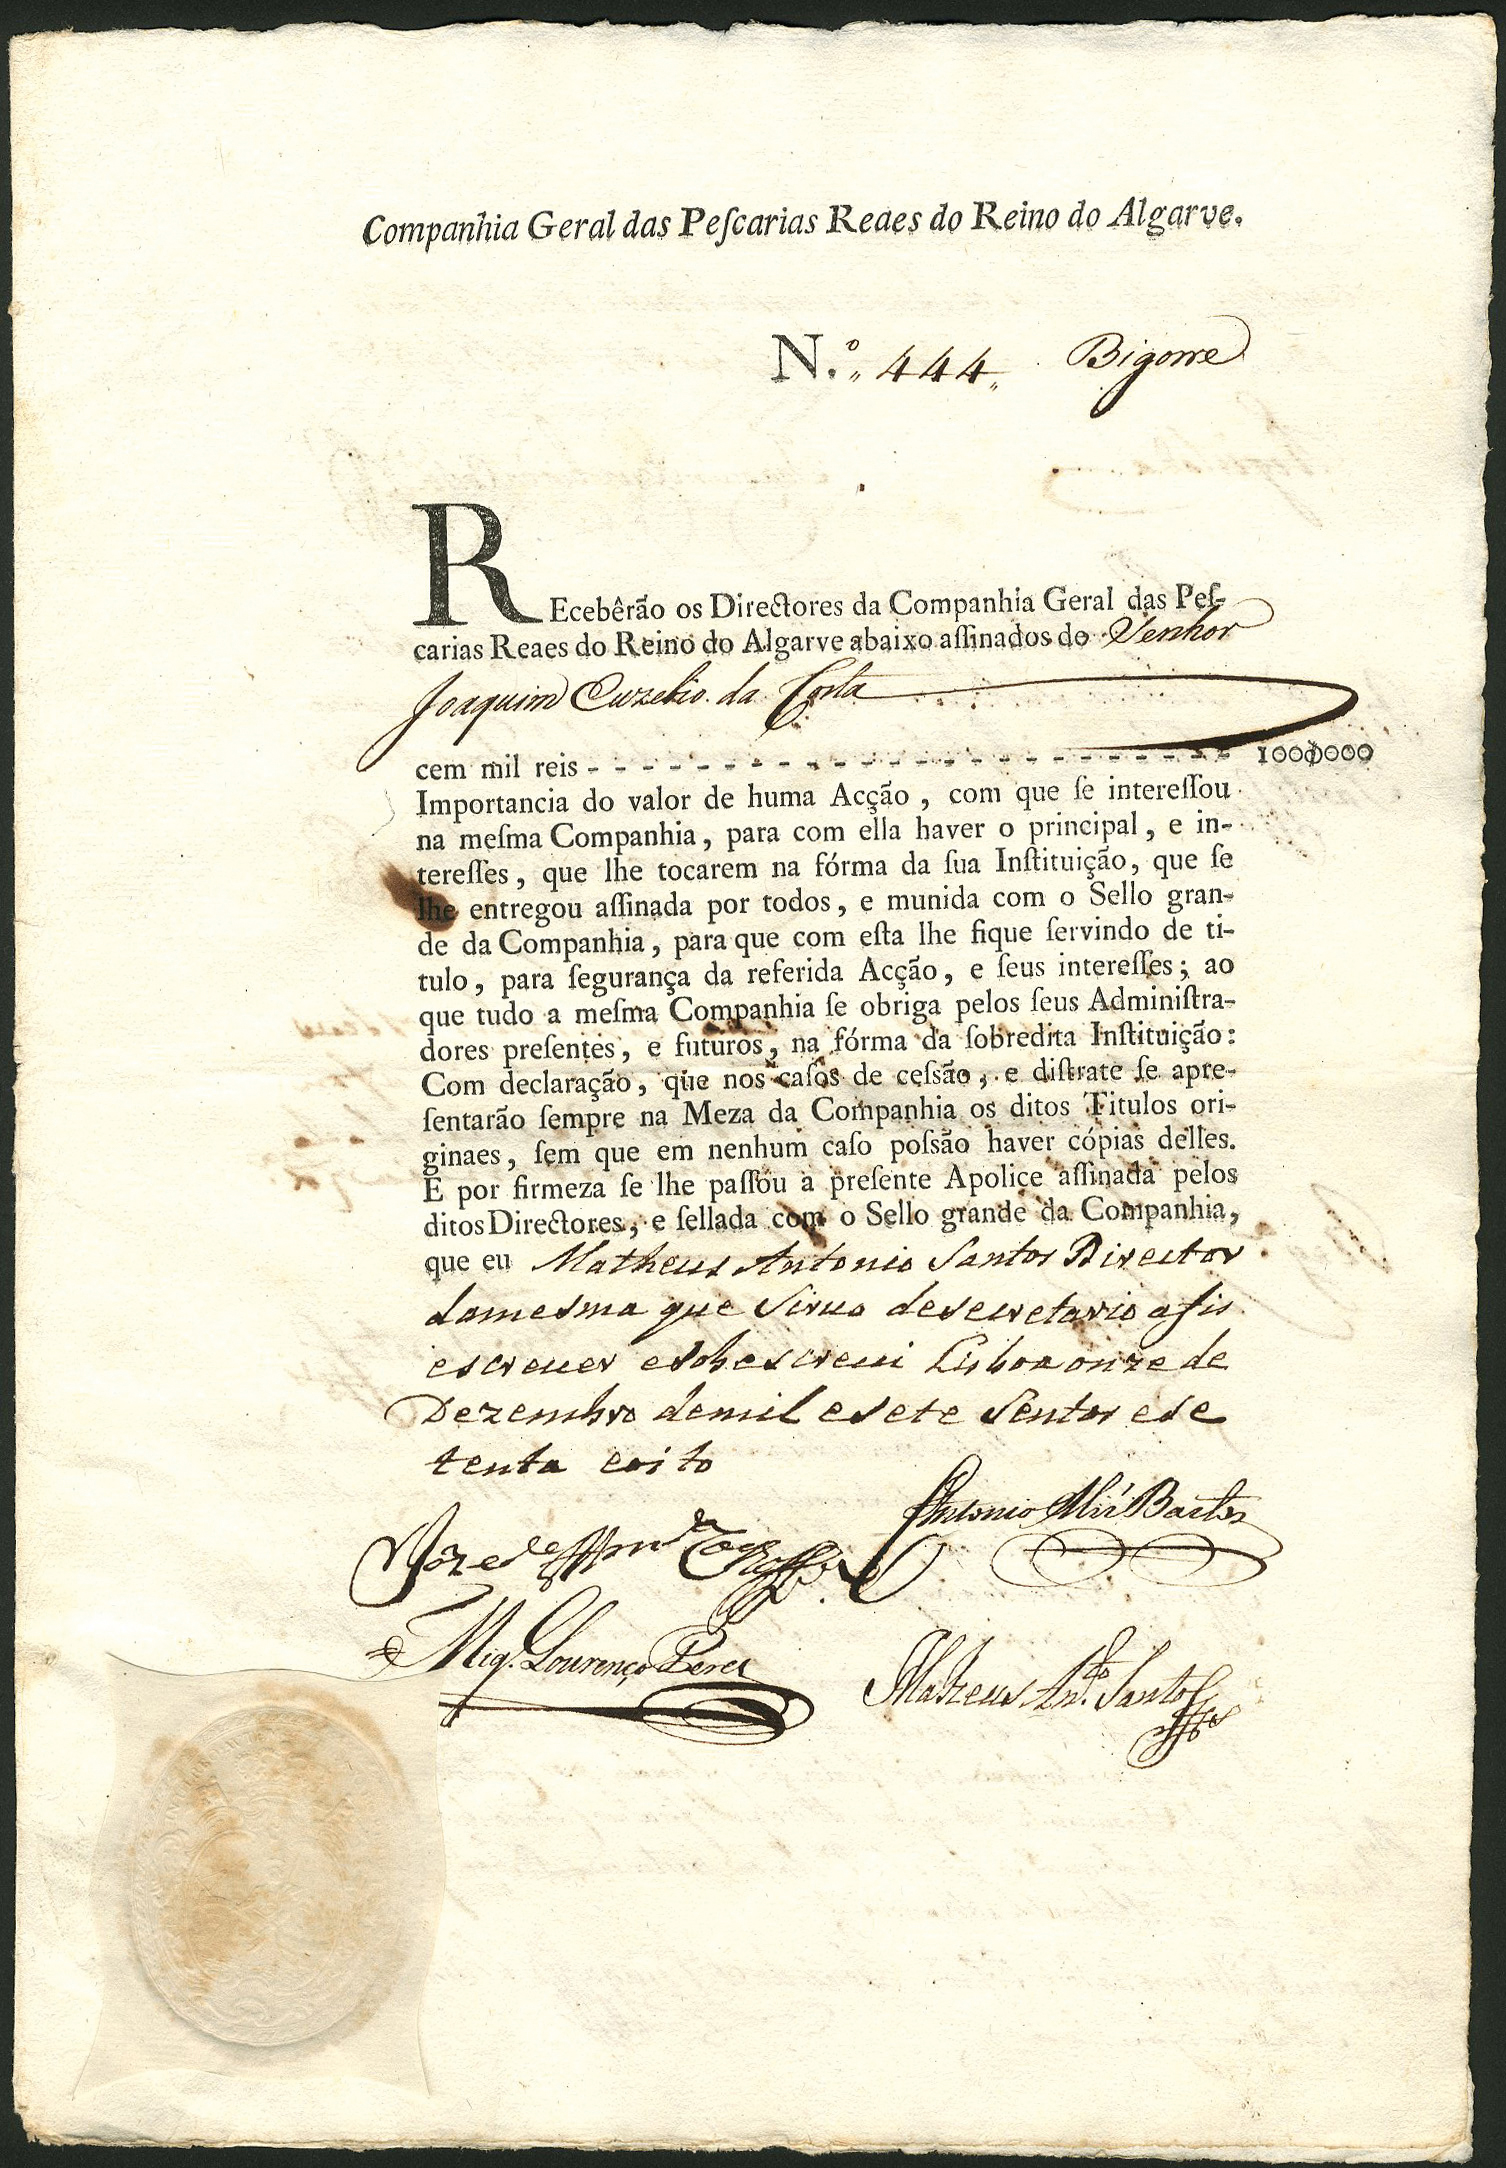 Companhia Geral das Peſcarias Reaes do Reino do Algarve.
N.º „ 444 „ Bigorre
REcebêrão os Directores da Companhia Geral das Peſ-
carias Reaes do Reino do Algarve abaixo aſſinados do Senhor
Joaquim Euzebio da Costa
cem mil reis - - - - - - - - - - - - - - - - - - - - - - - - 100ↀ000
Importancia do valor de huma Acção , com que ſe intereſſou
na meſma Companhia , para com ella haver o principal , e in-
tereſſes , que lhe tocarem na fórma da ſua Inſtituição, que ſe
lhe entregou aſſinada por todos , e munida com o Sello gran-
de da Companhia , para que com eſta lhe fique ſervindo de ti-
tulo , para ſegurança da referida Acção , e ſeus intereſſes ; ao
que tudo a meſma Companhia ſe obriga pelos ſeus Adminiſtra-
dores preſentes , e futuros , na fórma da ſobredita Inſtituição :
Com declaração , que nos caſos de ceſsão , e diſtrate ſe apre-
ſentarão ſempre na Meza da Companhia os ditos Titulos ori-
ginaes , ſem que em nenhum caſo poſsão haver cópias delles.
E por firmeza ſe lhe paſſou a preſente Apolice aſſinada pelos
ditos Directores , e ſellada com o Sello grande da Companhia ,
que eu Matheus Antonio Santos Director
damesma que Siruo desecretario afis
escreuer esobescreui Lisboa onze de
Dezembro demil esete Sentos ese
tenta eoito
Antonio Miz Bastos
Joze de
Mig. Lourenço Peres
Matheus An.to Santos